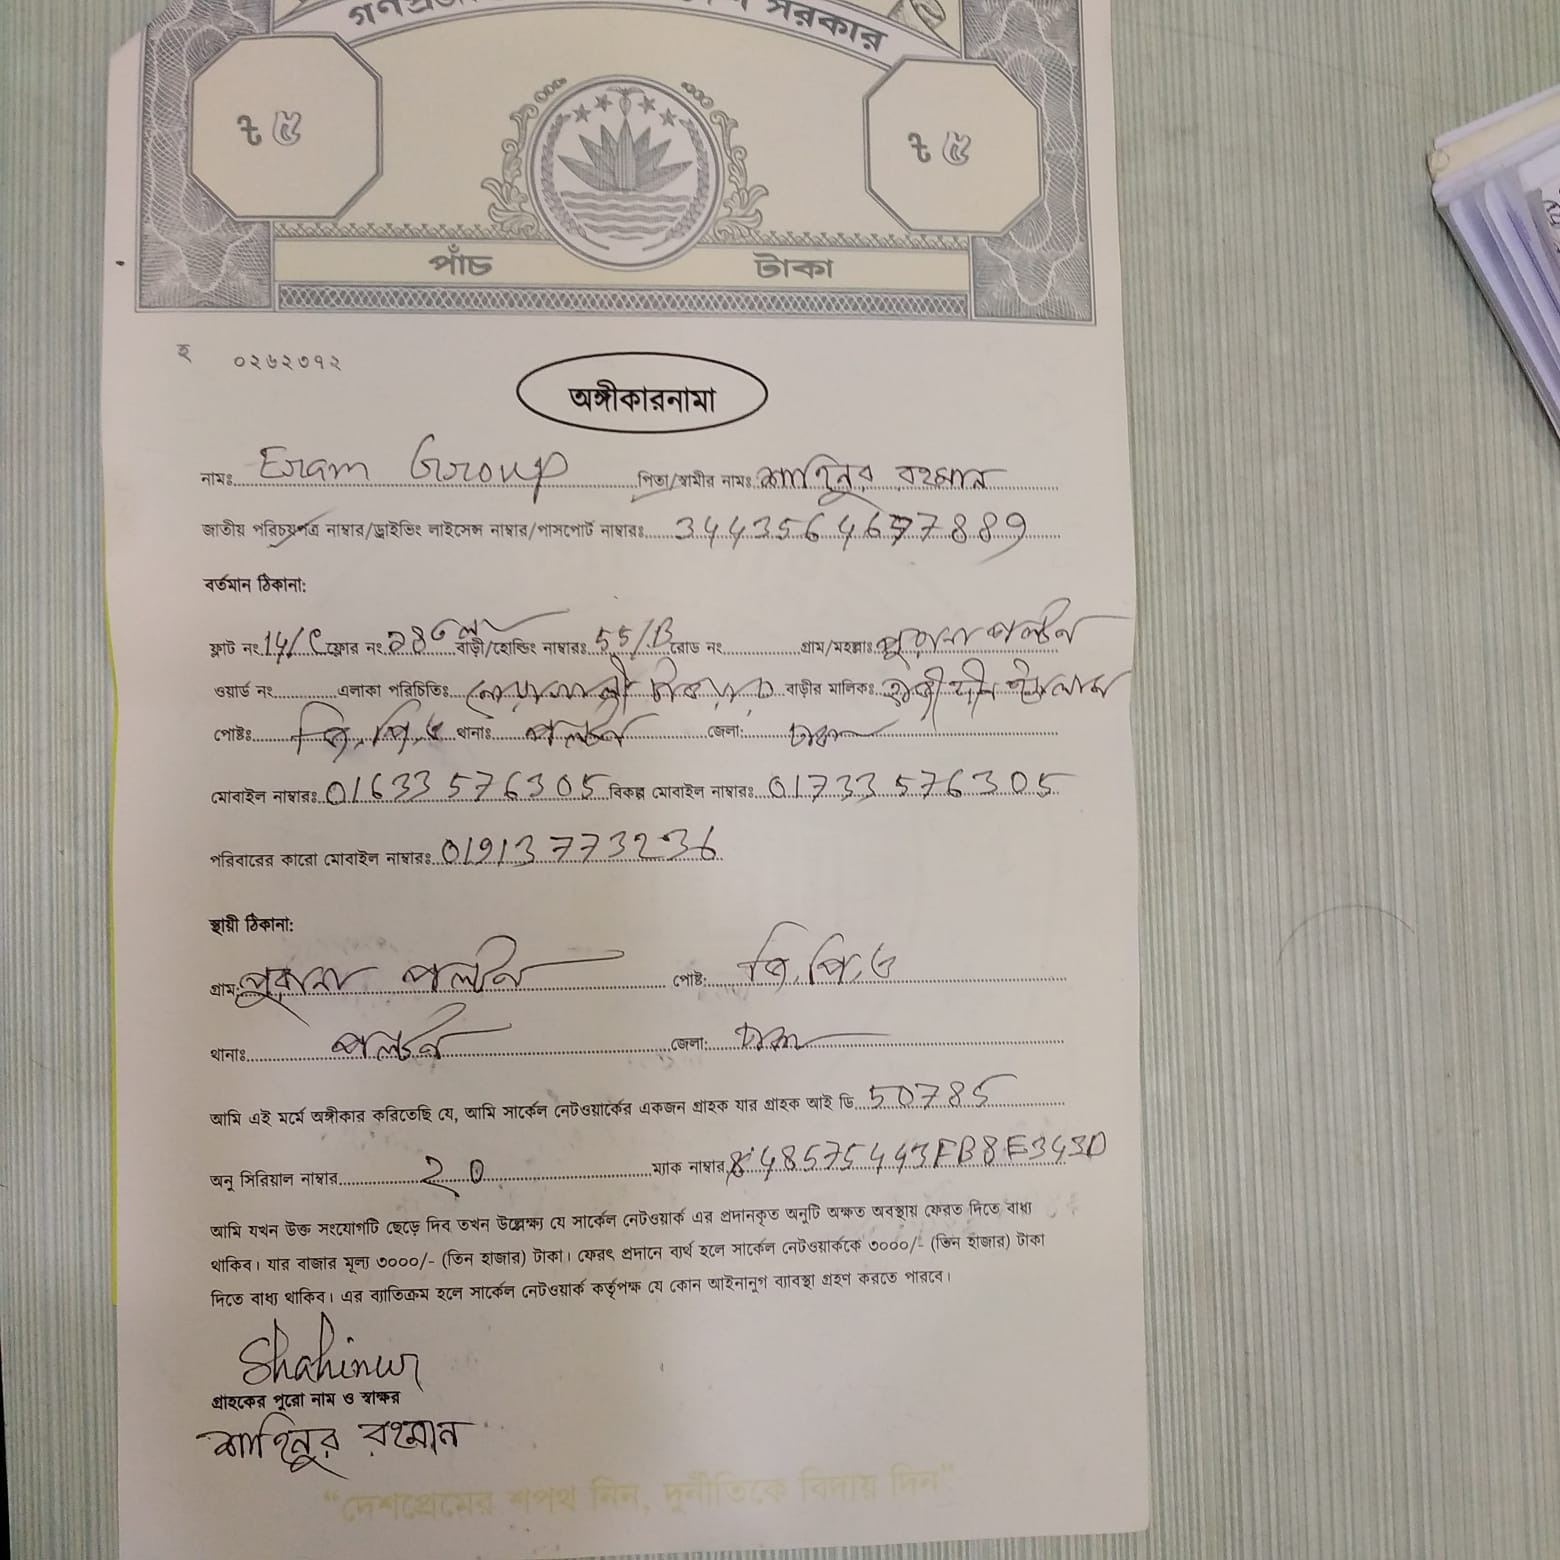 সরকার
৳ ৫ ৳ ৫
পাঁচ টাকা
হ ০২৬২৩৭২
অঙ্গীকারনামা
নামঃ Eram Group পিতা/স্বামীর নামঃ শাহিনুর রহমান
জাতীয় পরিচয়পত্র নাম্বার/ড্রাইভিং লাইসেন্স নাম্বার/পাসপোর্ট নাম্বারঃ
বর্তমান ঠিকানা:
ফ্লাট নং 14/C ফ্লোর নং বাড়ী/হোল্ডিং নাম্বারঃ 55/B রোড নং গ্রাম/মহল্লাঃ পুরানা পল্টন
ওয়ার্ড নং এলাকা পরিচিতিঃ বাড়ীর মালিকঃ
পোষ্টঃ জি.পি.ও থানাঃ পল্টন জেলা: ঢাকা
মোবাইল নাম্বারঃ 01633576305 বিকল্প মোবাইল নাম্বারঃ 01733576305
পরিবারের কারো মোবাইল নাম্বারঃ 01913773236
স্থায়ী ঠিকানা:
গ্রাম: পুরানা পল্টন পোষ্ট: জি.পি.ও
থানাঃ পল্টন জেলা: ঢাকা
আমি এই মর্মে অঙ্গীকার করিতেছি যে, আমি সার্কেল নেটওয়ার্কের একজন গ্রাহক যার গ্রাহক আই ডি 50785
অনু সিরিয়াল নাম্বার 20 ম্যাক নাম্বার 48575443FB8E343D
আমি যখন উক্ত সংযোগটি ছেড়ে দিব তখন উল্লেক্ষ্য যে সার্কেল নেটওয়ার্ক এর প্রদানকৃত অনুটি অক্ষত অবস্থায় ফেরত দিতে বাধ্য
থাকিব। যার বাজার মূল্য ৩০০০/- (তিন হাজার) টাকা। ফেরৎ প্রদানে ব্যর্থ হলে সার্কেল নেটওয়ার্ককে ৩০০০/- (তিন হাজার) টাকা
দিতে বাধ্য থাকিব। এর ব্যাতিক্রম হলে সার্কেল নেটওয়ার্ক কর্তৃপক্ষ যে কোন আইনানুগ ব্যাবস্থা গ্রহণ করতে পারবে।
Shahinur
গ্রাহকের পুরো নাম ও স্বাক্ষর
শাহিনুর রহমান
“দেশপ্রেমের শপথ নিন, দুর্নীতিকে বিদায় দিন”